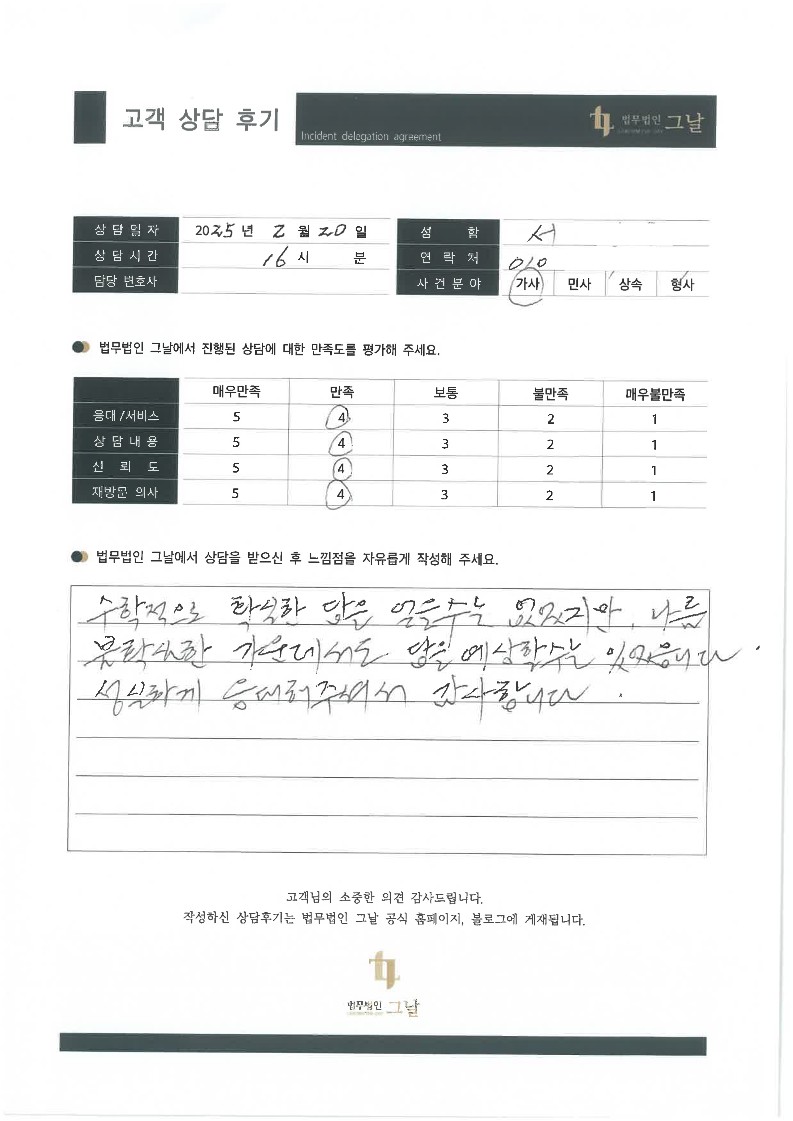 고객 상담 후기
Incident delegation agreement
법무법인 그날
상담일자 2025년 2월 20일 성 함 서
상담시간 16시 분 연 락 처 010
담당 변호사 사건분야 가사 민사 상속 형사
법무법인 그날에서 진행된 상담에 대한 만족도를 평가해 주세요.
매우만족 만족 보통 불만족 매우불만족
응대/서비스 5 4 3 2 1
상담내용 5 4 3 2 1
신 뢰 도 5 4 3 2 1
재방문 의사 5 4 3 2 1
법무법인 그날에서 상담을 받으신 후 느낌점을 자유롭게 작성해 주세요.
수학적으로 확실한 답을 얻을수는 없었지만, 나름
불확실한 가운데서도 답을 예상할수는 있었습니다.
성실하게 응대해주셔서 감사합니다.
고객님의 소중한 의견 감사드립니다.
작성하신 상담후기는 법무법인 그날 공식 홈페이지, 블로그에 게재됩니다.
법무법인 그날